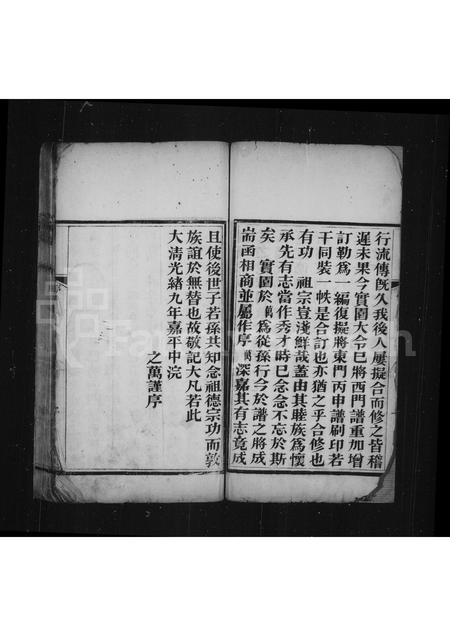 行流傳旣久我後人屢擬合而修之皆稽
遲未果今實園大令已將西門譜重加增
訂勒爲一編復擬將東門丙申譜刷印若
干同裝一帙是合訂也亦猶之乎合修也
有功 祖宗豈淺鮮哉蓋由其睦族爲懷
承先有志當作秀才時已念念不忘於斯
矣 實園於萬爲從孫行今於譜之將成
耑函相商並屬作序萬深嘉其有志竟成
且使後世子若孫共知念祖德宗功而敦
族誼於無替也故敬記大凡若此
大清光緒九年嘉平中浣
之萬謹序